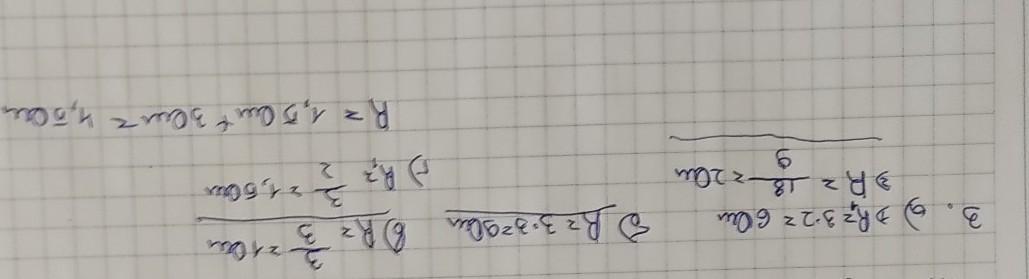 3. а) 1) R₁ = 3·2 = 6 Ом
2) R = 18/9 = 2 Ом
б) R = 3·3 = 9 Ом
в) R = 3/3 = 1 Ом
г) R₁ = 3/2 = 1,5 Ом
R = 1,5 Ом + 3 Ом = 4,5 Ом